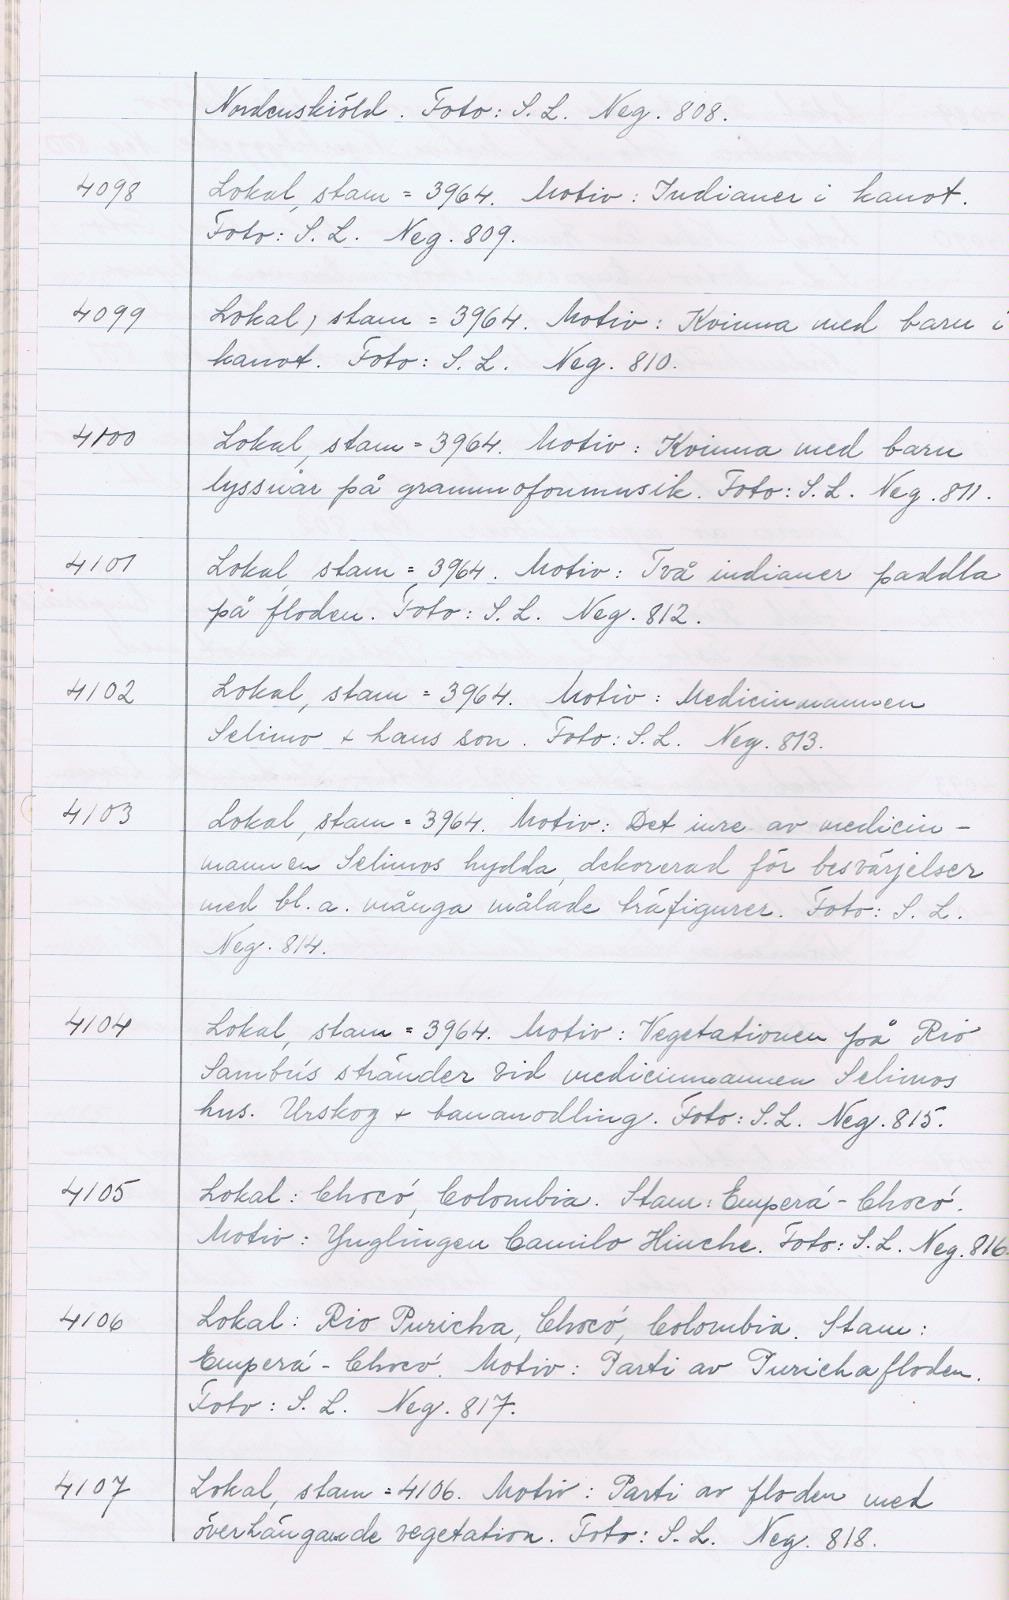 Nordenskiöld. Foto: S. L. Neg. 808.
4098 Lokal, stam = 3964. Motiv: Indianer i kanot.
Foto: S. L. Neg. 809.
4099 Lokal, stam = 3964. Motiv: Kvinna med barn i
kanot. Foto: S. L. Neg. 810.
4100 Lokal, stam = 3964. Motiv: Kvinna med barn
lyssnar på grammofonmusik. Foto: S. L. Neg. 811.
4101 Lokal, stam = 3964. Motiv: Två indianer paddla
på floden. Foto: S. L. Neg. 812.
4102 Lokal, stam = 3964. Motiv: Medicinmannen
Selimo + hans son. Foto: S. L. Neg. 813.
4103 Lokal, stam = 3964. Motiv: Det inre av medicin-
mannen Selimos hydda, dekorerad för besvärjelser
med bl. a. många målade träfigurer. Foto: S. L.
Neg. 814.
4104 Lokal, stam = 3964. Motiv: Vegetationen på Rio
Sambús stränder vid medicinmannen Selimos
hus. Urskog + bananodling. Foto: S. L. Neg. 815.
4105 Lokal: Chocó, Colombia. Stam: Emperá-Chocó.
Motiv: Ynglingen Camilo Hinche. Foto: S. L. Neg. 816.
4106 Lokal: Rio Puricha, Chocó, Colombia. Stam:
Emperá-Chocó. Motiv: Parti av Purichafloden.
Foto: S. L. Neg. 817.
4107 Lokal, stam = 4106. Motiv: Parti av floden med
överhängande vegetation. Foto: S. L. Neg. 818.